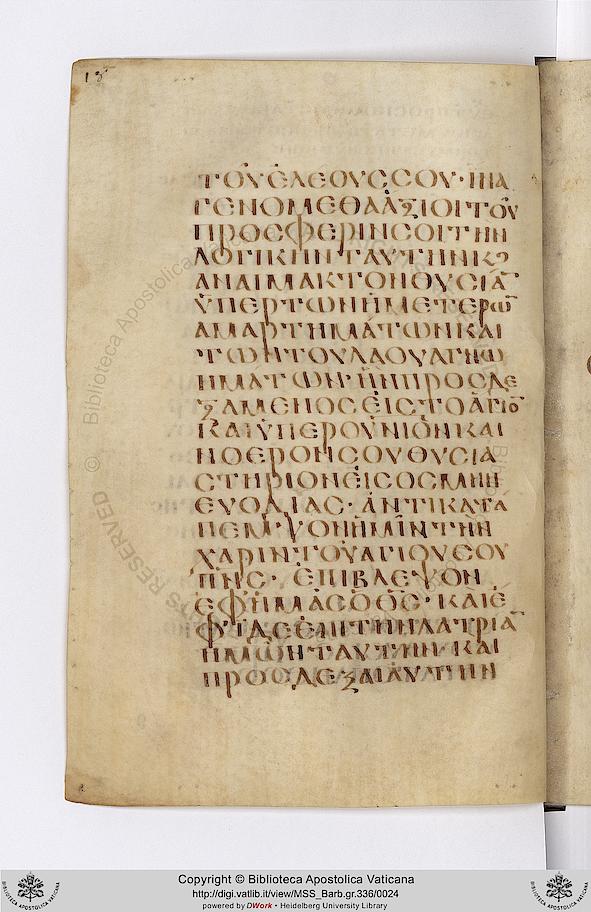 ΤΟΥ ΕΛΕΟΥC CΟΥ· ΙΝΑ
ΓΕΝΟΜΕΘΑ ΑΞΙΟΙ ΤΟΥ
ΠΡΟCΦΕΡΙΝ CΟΙ ΤΗΝ
ΛΟΓΙΚΗΝ ΤΑΥΤΗΝ Κ
ΑΝΑΙΜΑΚΤΟΝ ΘΥCΙΑ̅
ΫΠΕΡ ΤΩΝ ΗΜΕΤΕΡΩ̅
ΑΜΑΡΤΗΜΑΤΩΝ ΚΑΙ
ΤΩΝ ΤΟΥ ΛΑΟΥ ΑΓΝΩ
ΗΜΑΤΩΝ· ΗΝ ΠΡΟCΔΕ
ΞΑΜΕΝΟC ΕΙC ΤΟ ΑΓΙΟ̅
ΚΑΙ ΫΠΕΡΟΥΝΙΟΝ ΚΑΙ
ΝΟΕΡΟΝ CΟΥ ΘΥCΙΑ
CΤΗΡΙΟΝ ΕΙC ΟCΜΗΝ
ΕΥΟΔΙΑC· ΑΝΤΙΚΑΤΑ
ΠΕΜΨΟΝ ΗΜΙΝ ΤΗΝ
ΧΑΡΙΝ ΤΟΥ ΑΓΙΟΥ CΟΥ
Π̅Ν̅C̅· ΕΠΙΒΛΕΨΟΝ
ΕΦ ΗΜΑC Ο Θ̅C̅· ΚΑΙ Ε
ΦΙΔΕ ΕΠΙ ΤΗΝ ΛΑΤΡΙΑ̅
ΗΜΩΝ ΤΑΥΤΗΝ· ΚΑΙ
ΠΡΟCΔΕΞΑΙ ΑΥΤΗΝ
Copyright © Biblioteca Apostolica Vaticana
http://digi.vatlib.it/view/MSS_Barb.gr.336/0024
powered by DWork • Heidelberg University Library